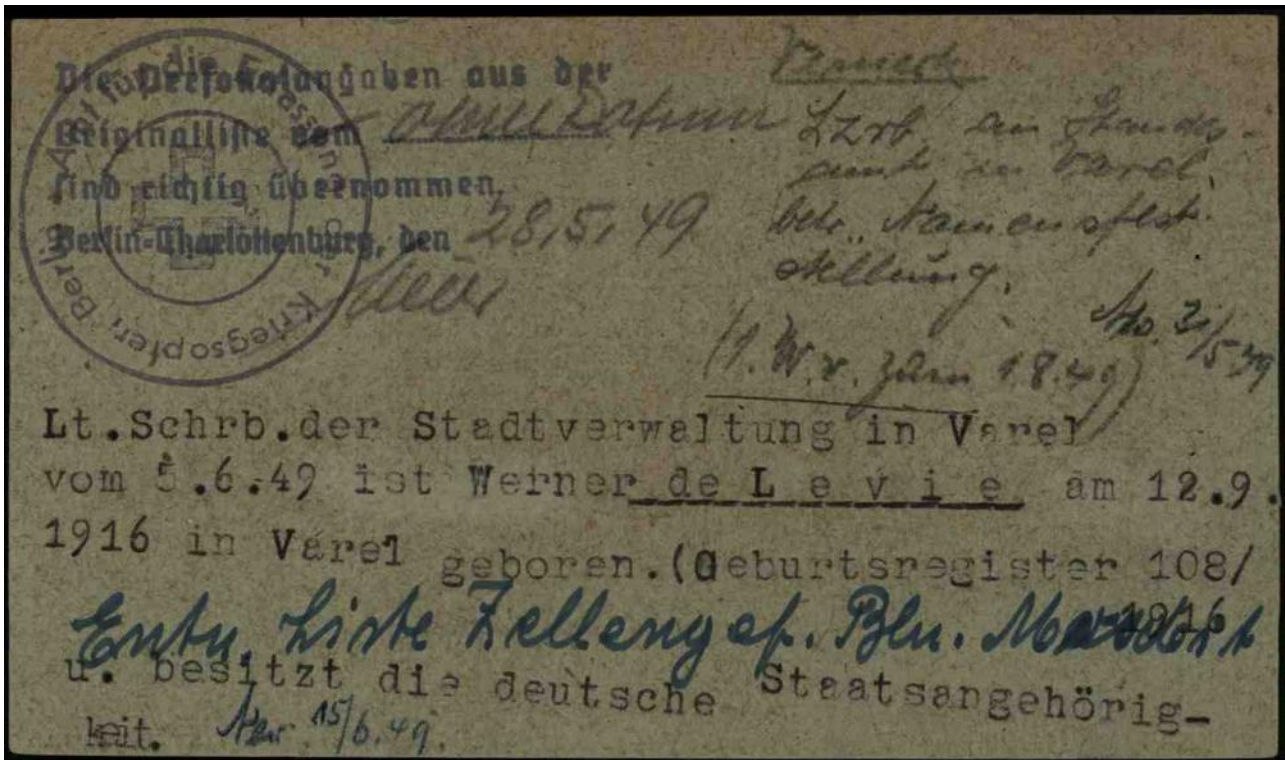 Die Personalangaben aus der
Originalliste vom ohne Datum
sind richtig übernommen.
Berlin-Charlottenburg, den 28.5.49
Amt für die Erfassung der Kriegsopfer, Berlin
Vermerk
an Standes-
amt in Varel,
betr. Namensfest-
stellung.
(1. W.v. zum 1.8.49)
31/5.49
Lt.Schrb.der Stadtverwaltung in Varel
vom 5.6.49 ist Werner de L e v i e am 12.9.
1916 in Varel geboren.(Geburtsregister 108/
1916
Entn. Liste Zellengef. Bln.
u. besitzt die deutsche Staatsangehörig-
keit. 15/6.49.